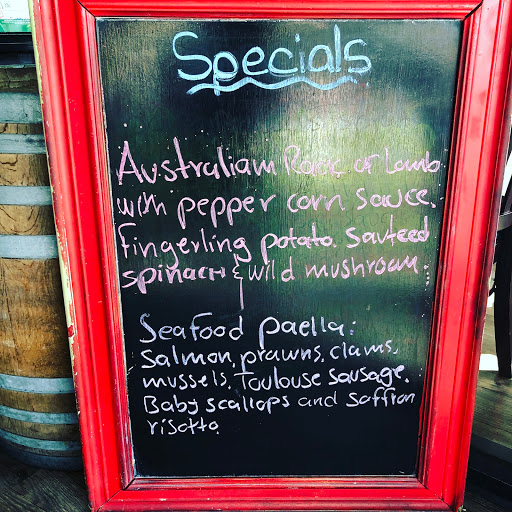 Specials
Australian Rack of Lamb
with pepper corn sauce.
Fingerling potato. sauteed
spinach & wild mushroom.
Seafood paella:
Salmon, prawns, clams,
mussels, Toulouse sausage.
Baby scallops and saffron
risotto.